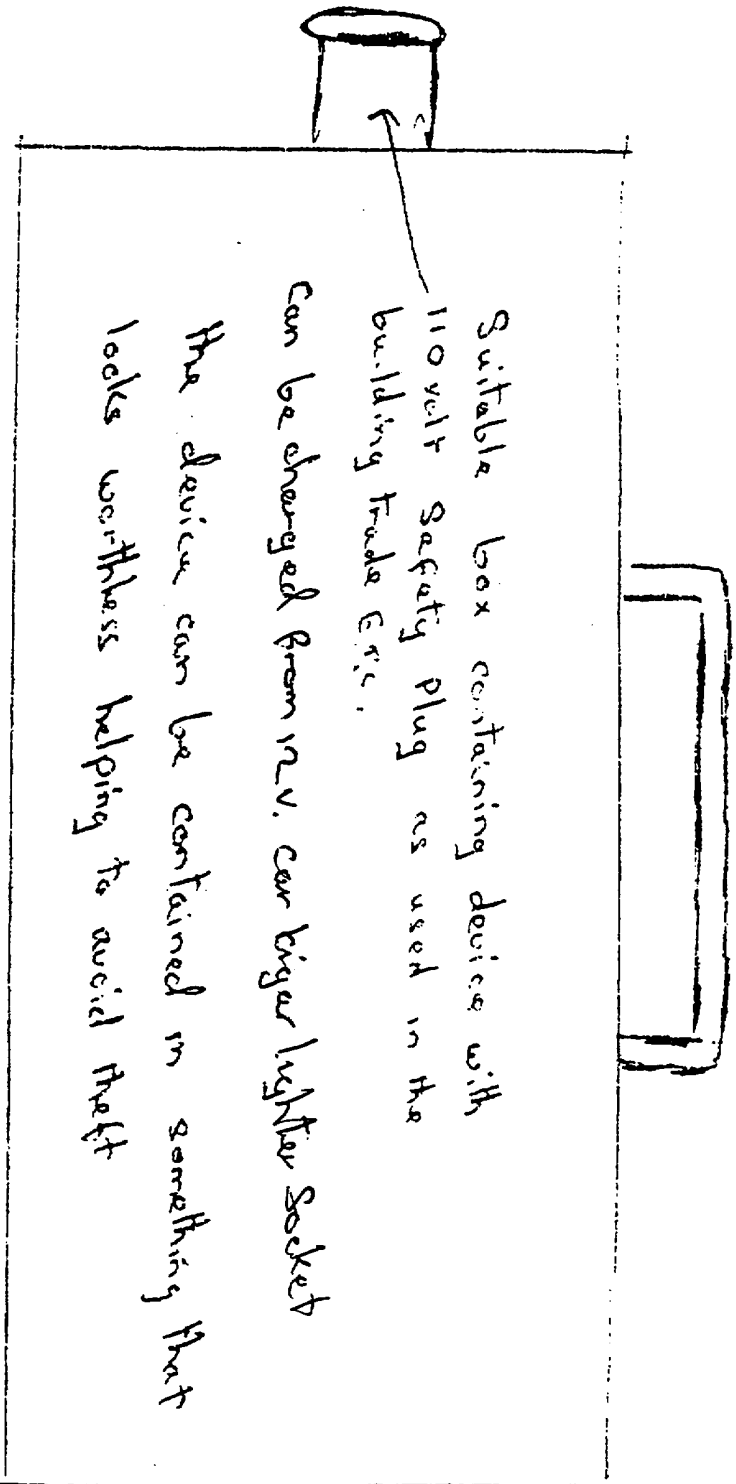 Suitable box containing device with
110 volt Safety plug as used in the
building trade Etc.
Can be charged from 12v. car cigar lighter Socket
the device can be contained in something that
looks worthless helping to avoid theft